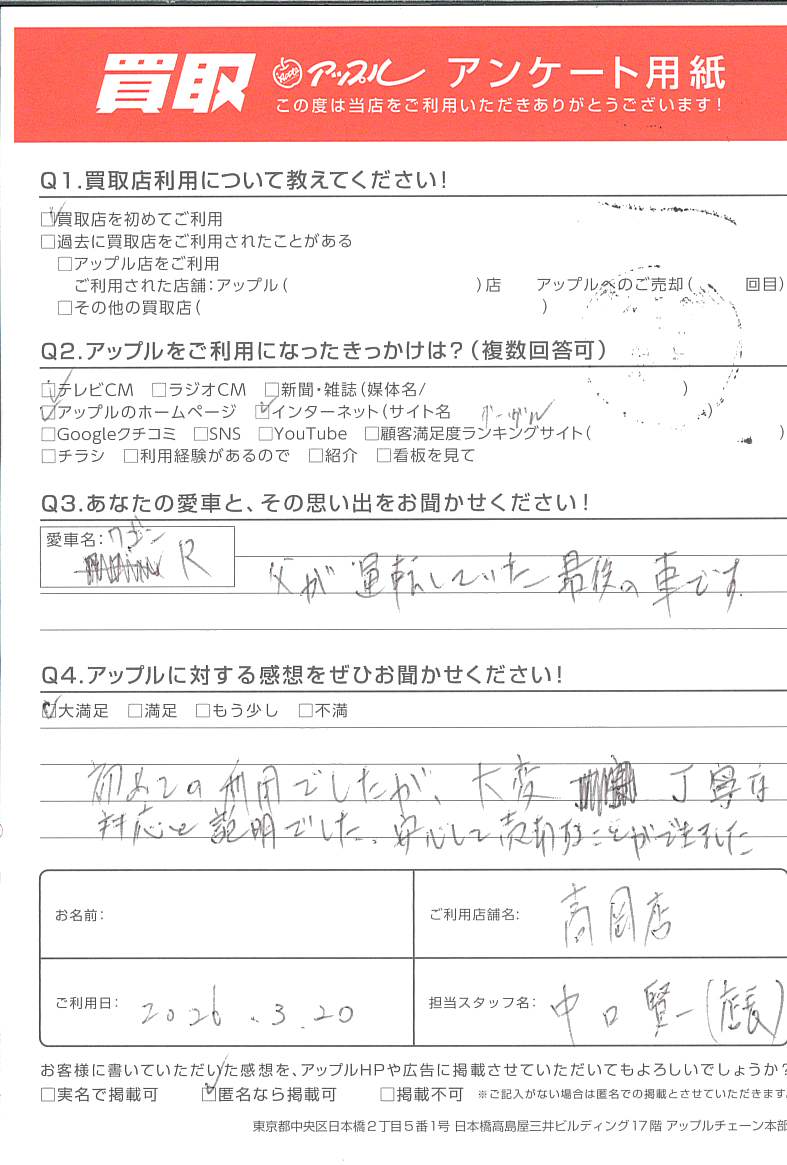 買取 アップル アンケート用紙
この度は当店をご利用いただきありがとうございます！
Q1.買取店利用について教えてください！
☑買取店を初めてご利用
□過去に買取店をご利用されたことがある
□アップル店をご利用
ご利用された店舗：アップル（　　）店　アップルへのご売却（　　回目）
□その他の買取店（　　）
Q2.アップルをご利用になったきっかけは？（複数回答可）
☑テレビCM　□ラジオCM　□新聞・雑誌（媒体名/　　）
☑アップルのホームページ　☑インターネット（サイト名　グーグル　）
□Googleクチコミ　□SNS　□YouTube　□顧客満足度ランキングサイト（　　）
□チラシ　□利用経験があるので　□紹介　□看板を見て
Q3.あなたの愛車と、その思い出をお聞かせください！
愛車名：ワゴン
R
父が運転していた最後の車です
Q4.アップルに対する感想をぜひお聞かせください！
☑大満足　□満足　□もう少し　□不満
初めての利用でしたが、大変 丁寧な
対応と説明でした。安心して売却することができました
お名前：
ご利用店舗名：高岡店
ご利用日：2026.3.20
担当スタッフ名：中口賢一（店長）
お客様に書いていただいた感想を、アップルHPや広告に掲載させていただいてもよろしいでしょうか？
□実名で掲載可　☑匿名なら掲載可　□掲載不可　※ご記入がない場合は匿名での掲載とさせていただきます。
東京都中央区日本橋2丁目5番1号 日本橋高島屋三井ビルディング17階 アップルチェーン本部